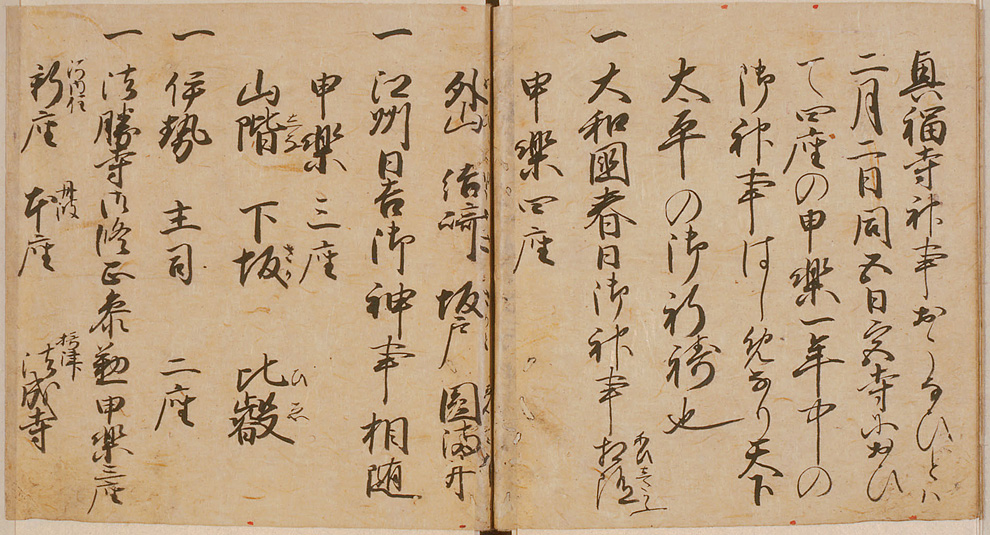 興福寺神事おこなひとハ
二月二日同五日宮寺におひ
て四座の申樂一年中の
御神事はしめなり天下
太平の御祈祷也
一 大和國春日御神事相随
申樂四座
外山 結崎 坂戸 圓満井
一 江州日吉御神事相随
申樂三座
山階 下坂 比叡
さか
ひゑ
一 伊勢 主司 二座
一 法勝寺御修正参勤申樂三座
新座 本座 法成寺
河内住
丹波
摂津